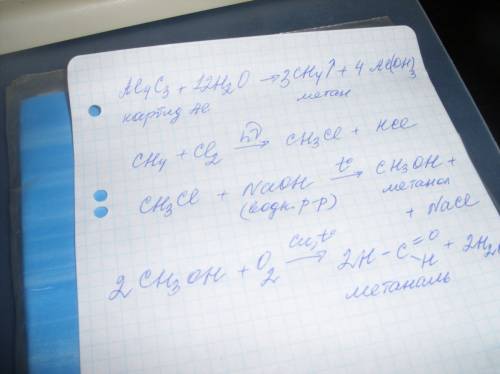 Al₄C₃ + 12H₂O → 3CH₄↑ + 4Al(OH)₃
карбид Al метан
CH₄ + Cl₂ →(hν) CH₃Cl + HCl
CH₃Cl + NaOH →(t°) CH₃OH +
(водн. р-р) метанол
+ NaCl
2CH₃OH + O₂ →(Cu, t°) 2H-C=O + 2H₂
H
метаналь